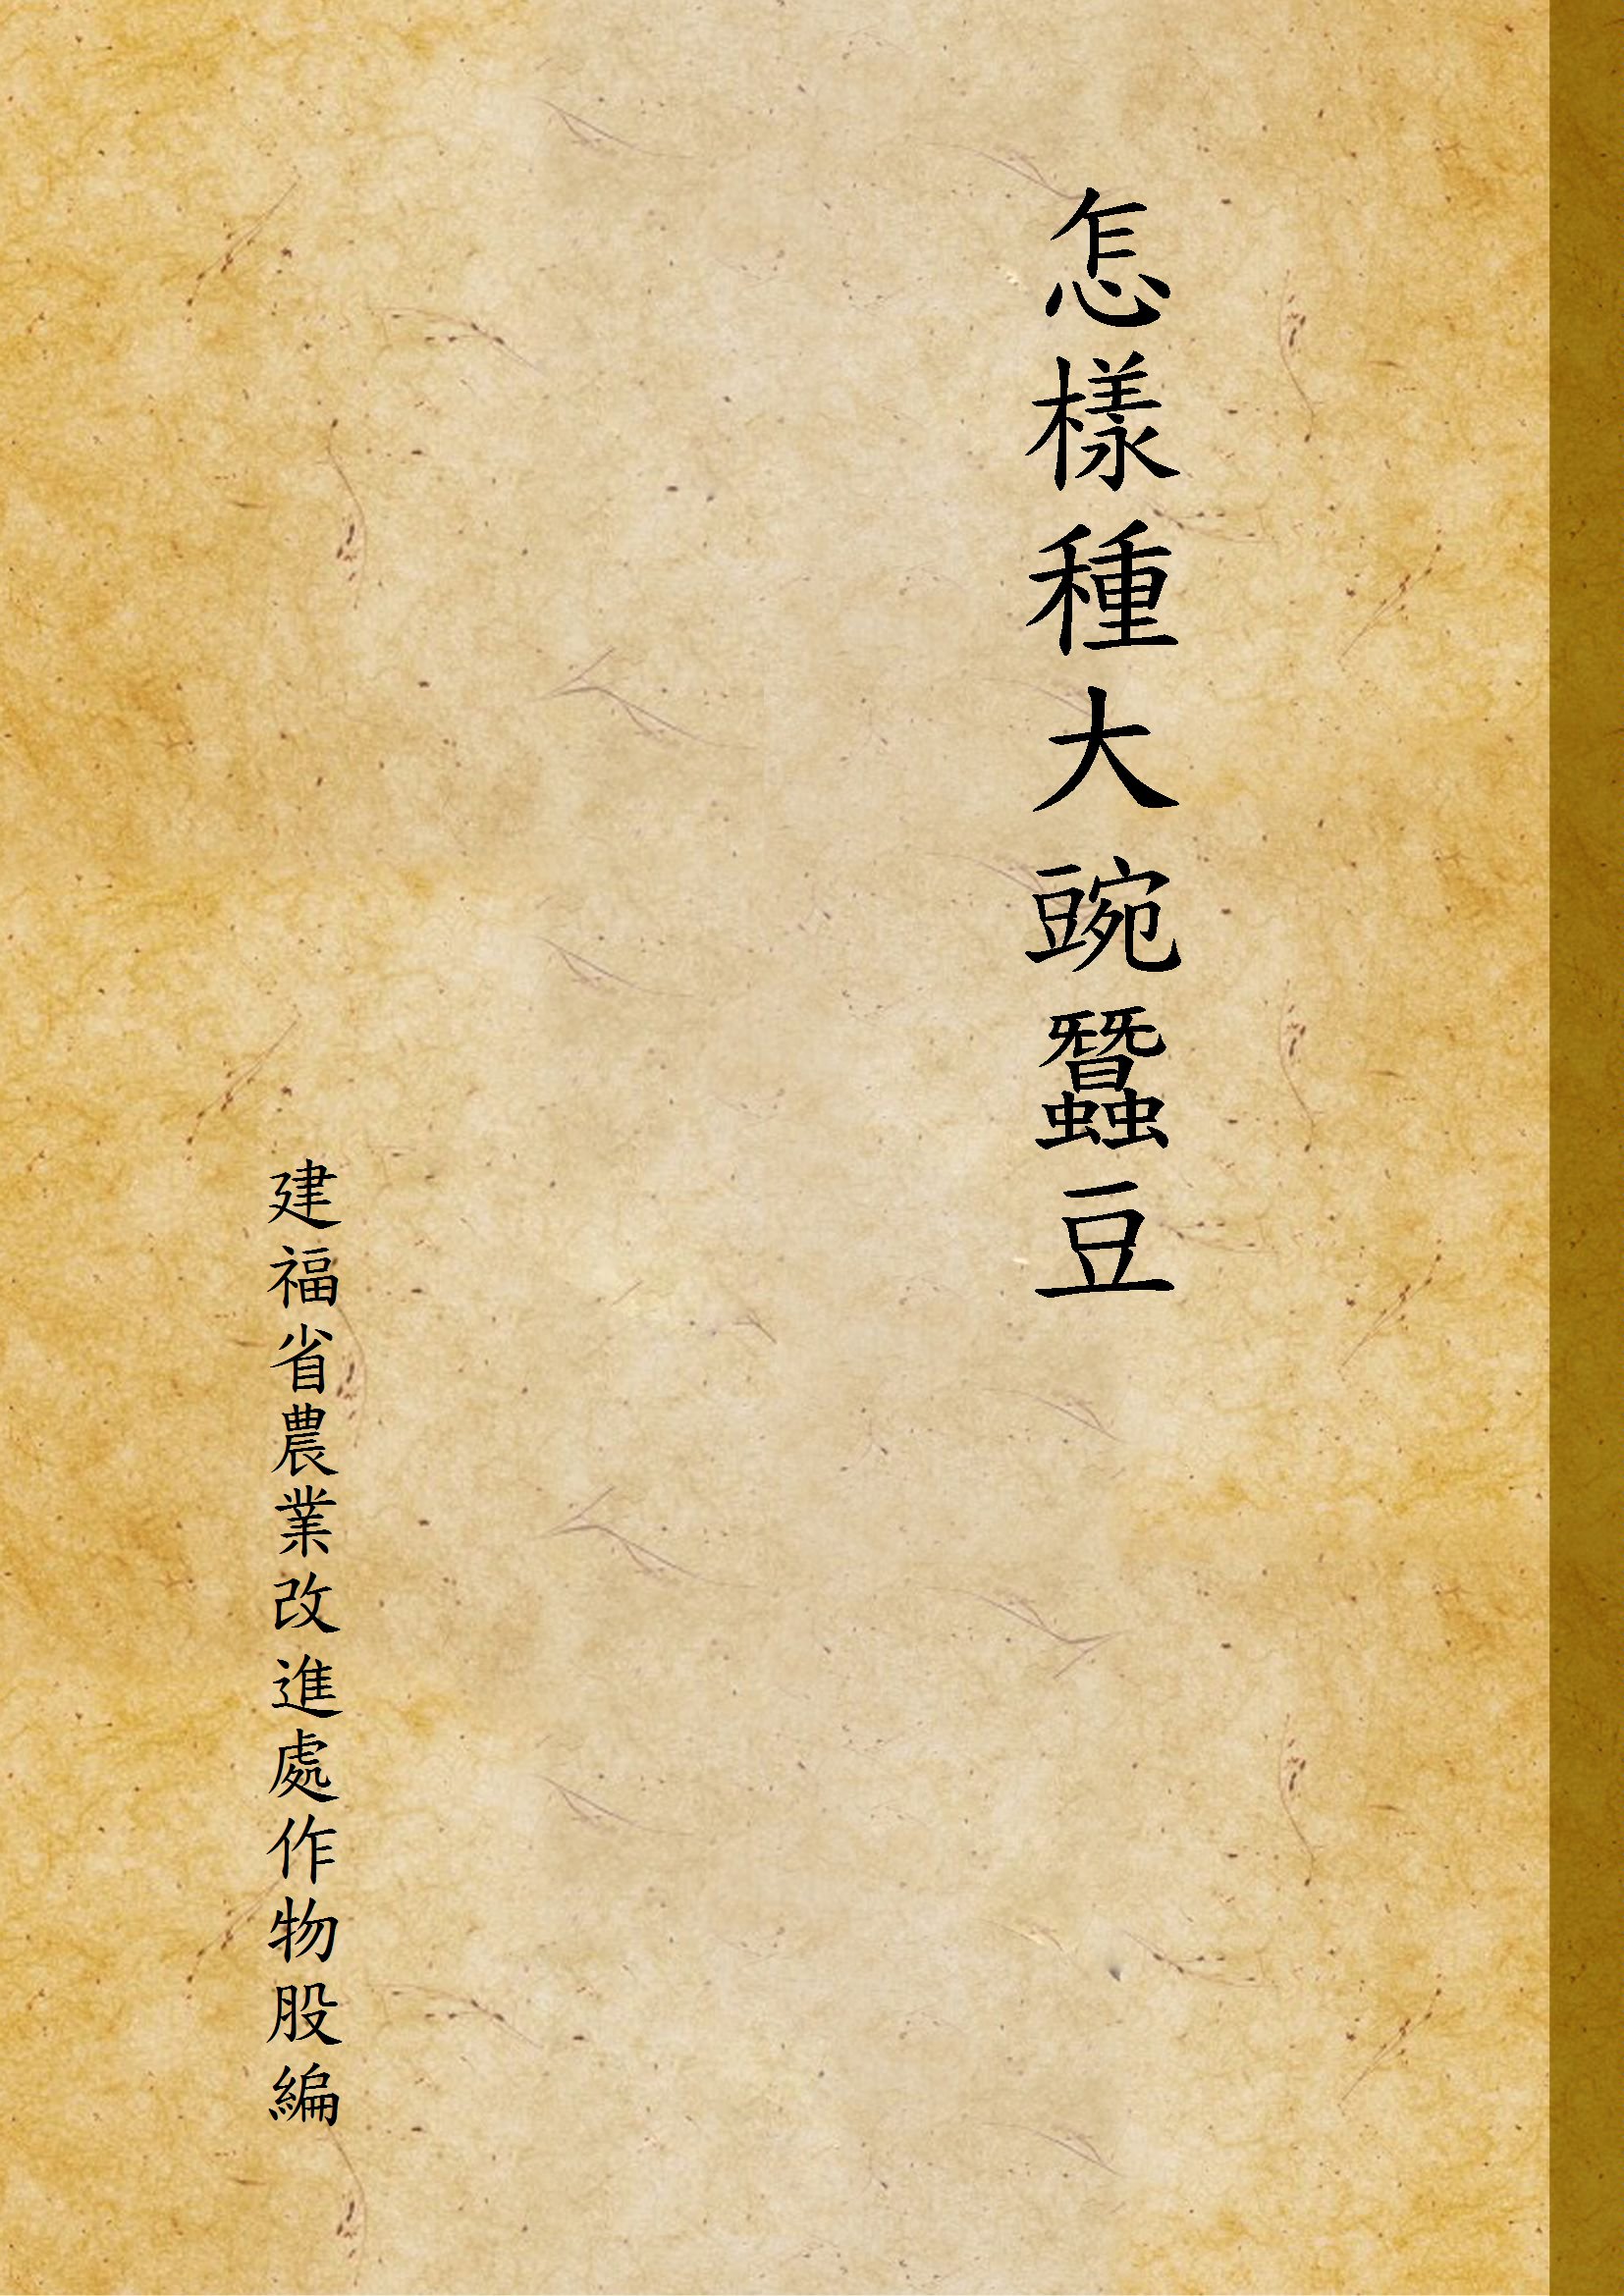 怎樣種大豌蠶豆
建福省農業改進處作物股編